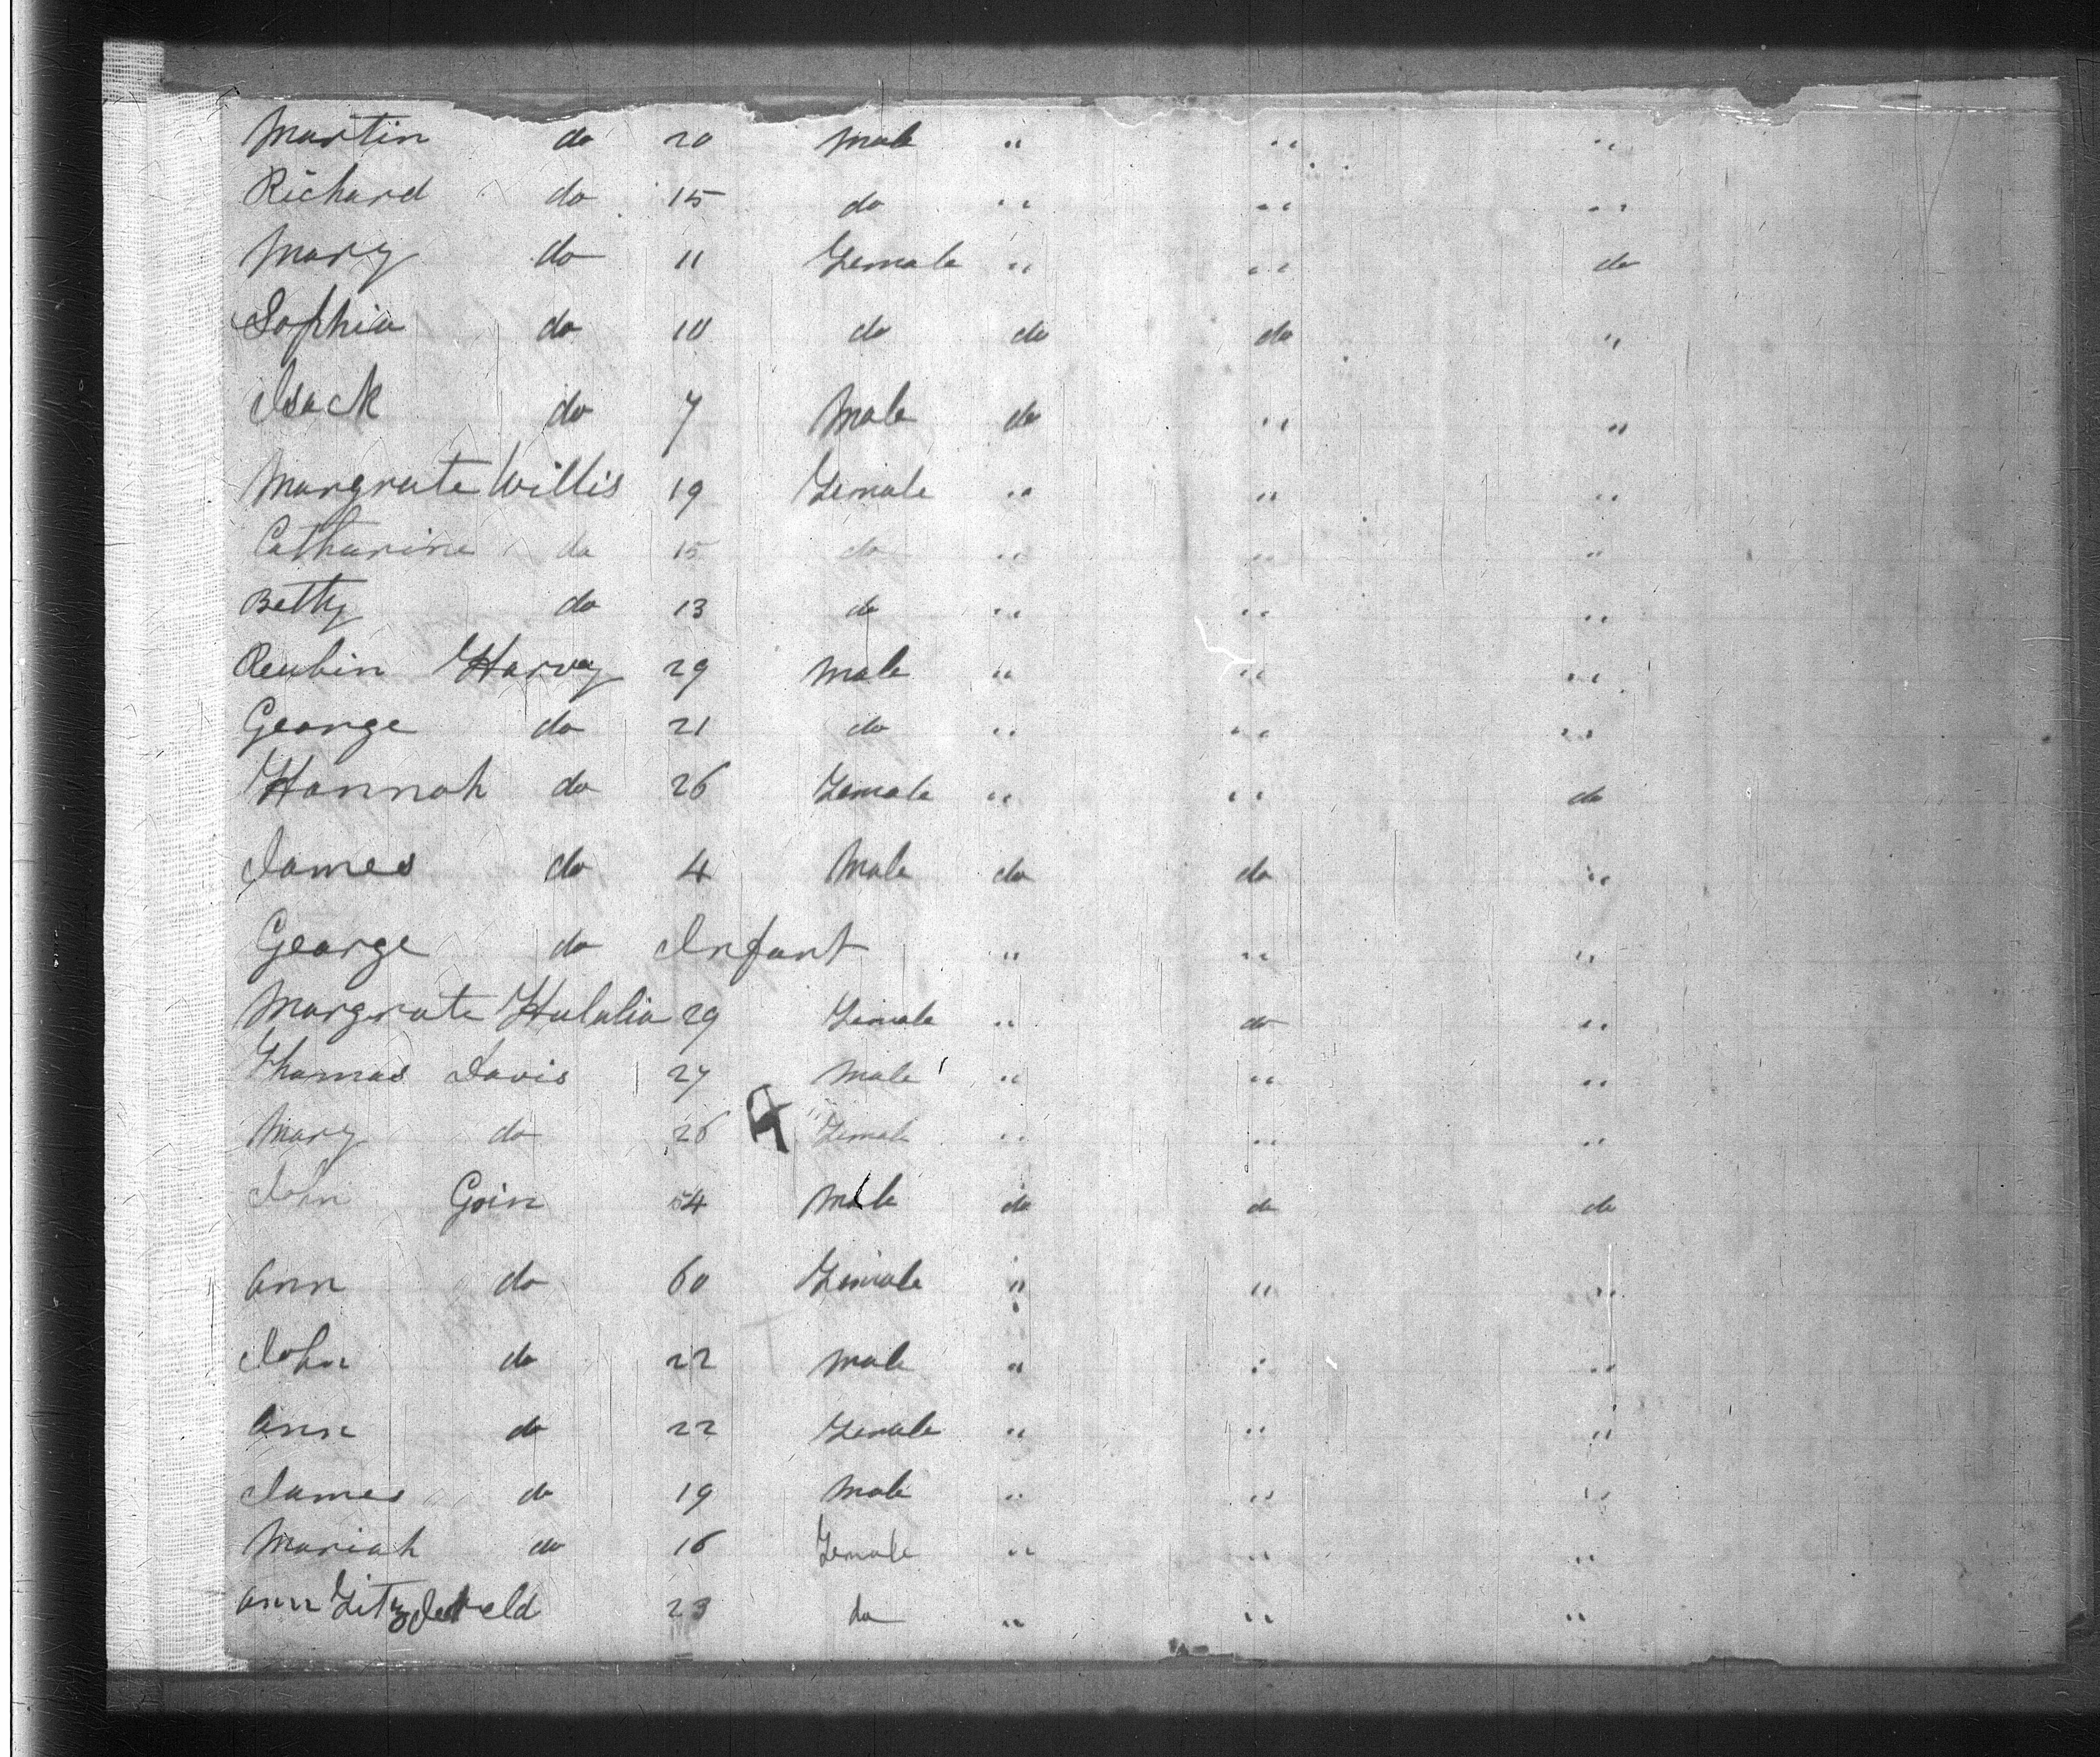 Martin do 20 Male " " "
Richard do 15 do " " "
Mary do 11 Female " " do
Sophia do 10 do do do "
Isack do 7 Male do " "
Margrate Willis 19 Female " " "
Catharine do 15 do " " "
Betty do 13 do " " "
Reubin Harvey 29 Male " " "
George do 21 do " " "
Hannah do 26 Female " " do
James do 4 Male do do "
George do Infant " " "
Margrate 29 Female " do "
Thomas Davis 27 Male " " "
Mary do 26 Female " " "
John Goin 54 Male do do do
Ann do 60 Female " " "
John do 22 Male " " "
Ann do 22 Female " " "
James do 19 Male " " "
Mariah do 16 Female " " "
Ann 23 do " " "